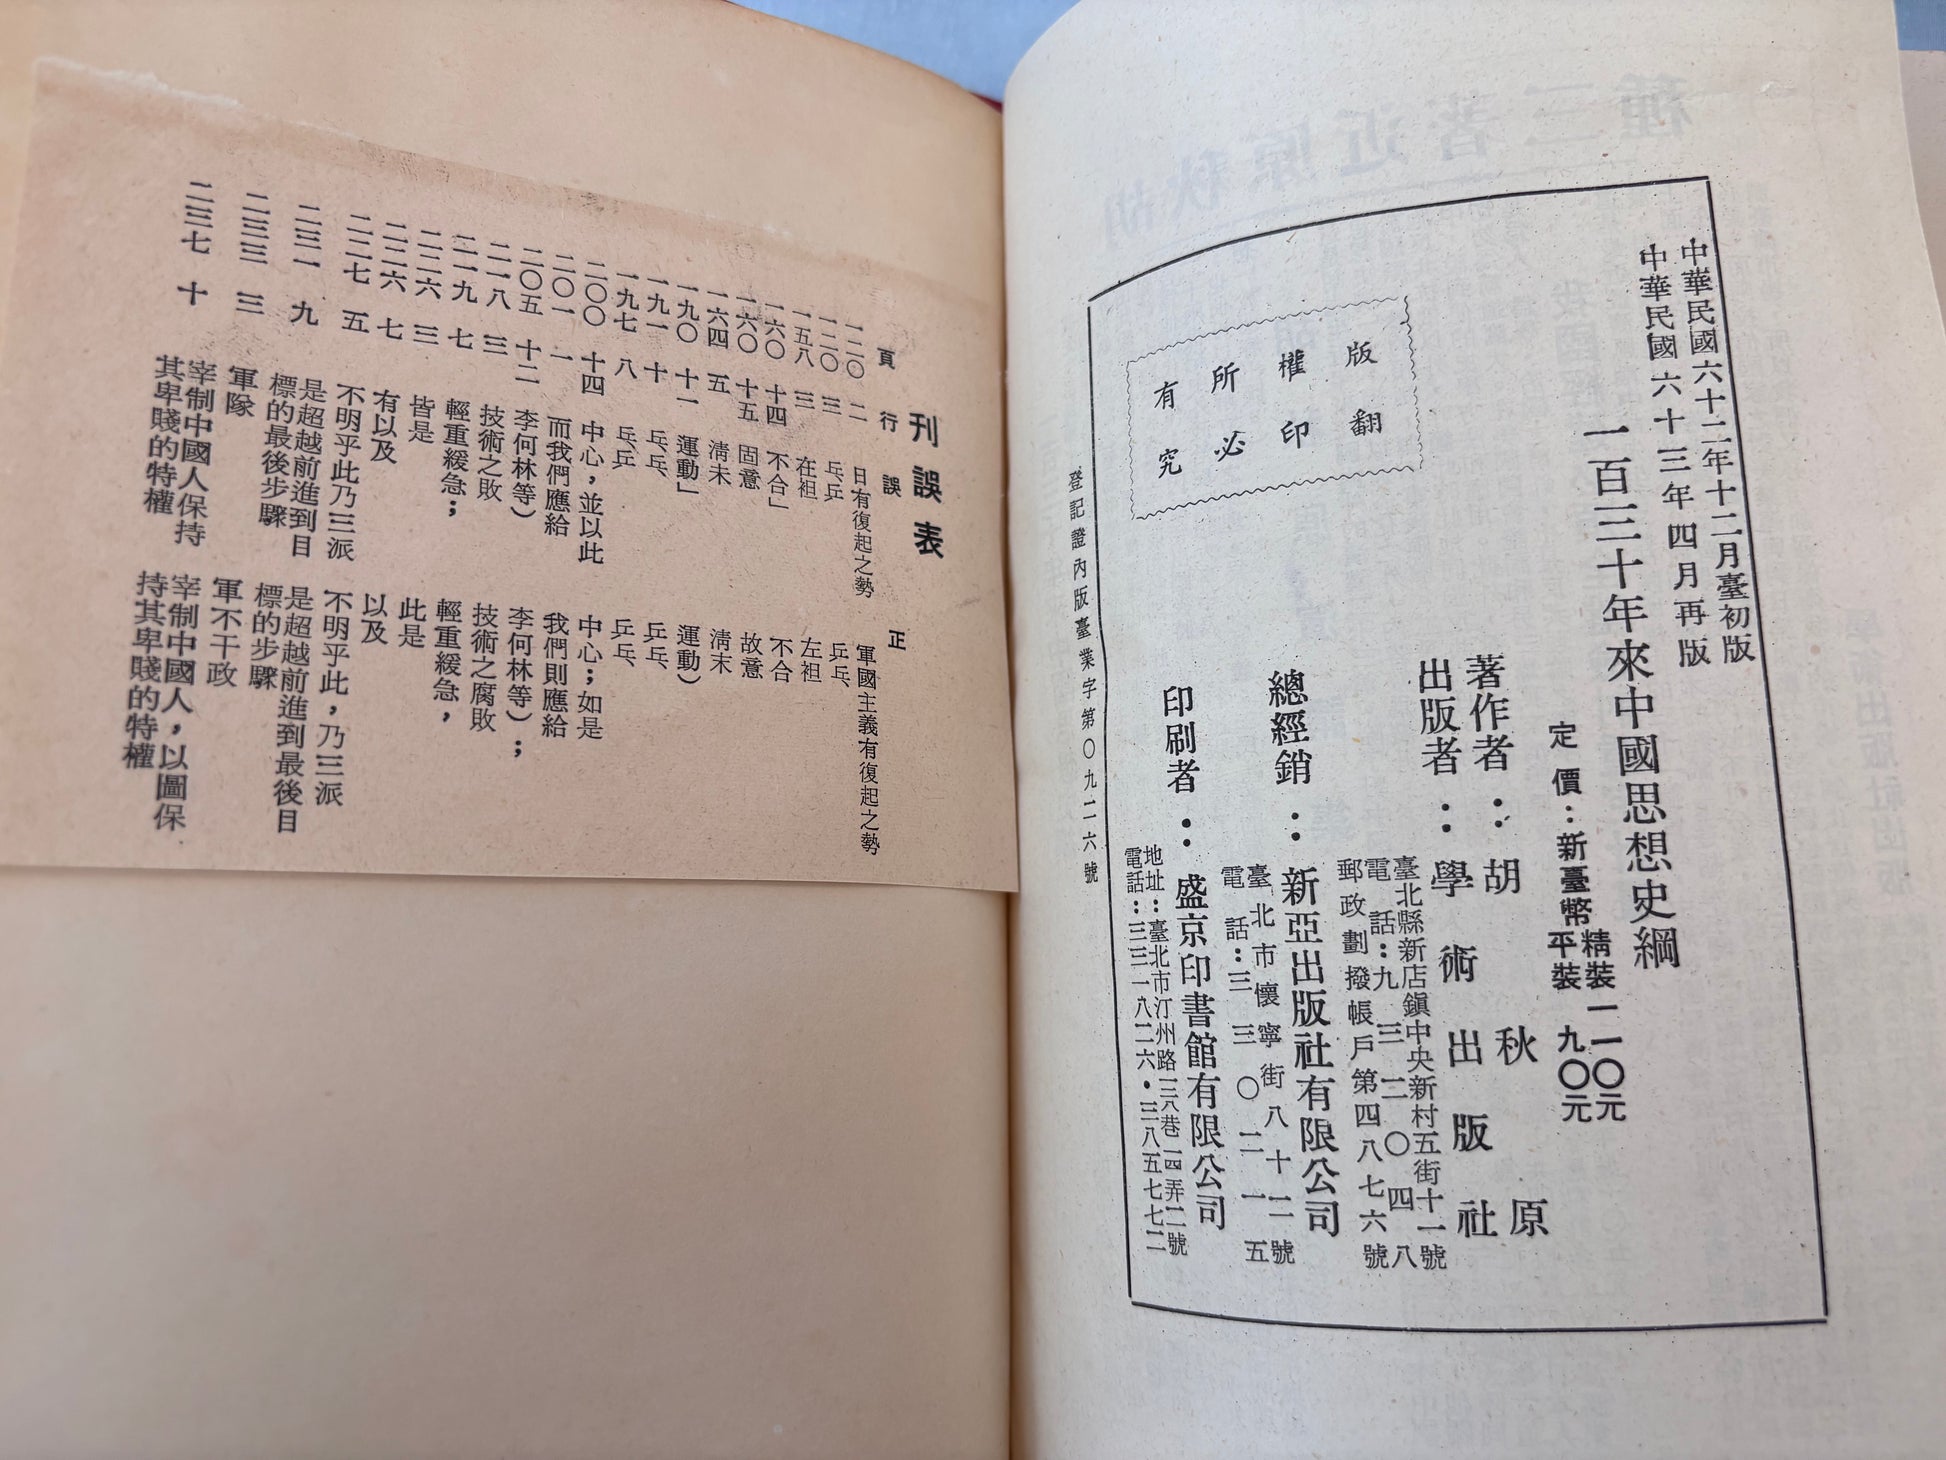 中華民國六十二年十二月臺初版
中華民國六十三年四月再版
一百三十年來中國思想史綱
定價：新臺幣 精裝一一〇元
平裝 九〇元
著作者：胡秋原
出版者：學術出版社
臺北縣新店鎮中央新村五街十一號
電話：九三二〇四八
郵政劃撥帳戶第四八七六號
總經銷：新亞出版社有限公司
臺北市懷寧街八十二號
電話：三三〇二一五
印刷者：盛京印書館有限公司
地址：臺北市汀州路三八巷一四弄二號
電話：三三一八二六・三八五七七二
版翻
權印
所必
有究
登記證內版臺業字第〇九二六號
刊誤表
頁 行 誤 正
一二〇 二 日有復起之勢 軍國主義有復起之勢
一二〇 三 乓乒 乒乓、
一五八 三 在袒 左袒
一六〇 十四 不合」 不合
一六〇 十五 固意 故意
一六四 五 淸未 淸末
一九〇 十一 運動」 運動）
一九一 十 乓乓、 乒乓、
一九七 八 乓、乒 乒乓、
二〇〇 十四 中心，並以此 中心；如是
二〇一 一 而我們應給 我們則應給
二〇五 十二 李何林等） 李何林等）；
二一八 三 技術之敗 技術之腐敗
二一九 七 輕重緩急； 輕重緩急，
二二六 三 皆是 此是
二二六 七 有以及 以及
二二七 五 不明乎此乃三派 不明乎此，乃三派
二三一 九 是超越前進到目標的最後步驟 是超越前進到最後目標的步驟
二三三 三 軍隊 軍不干政
二三七 十 宰制中國人保持其卑賤的特權 宰制中國人，以圖保持其卑賤的特權